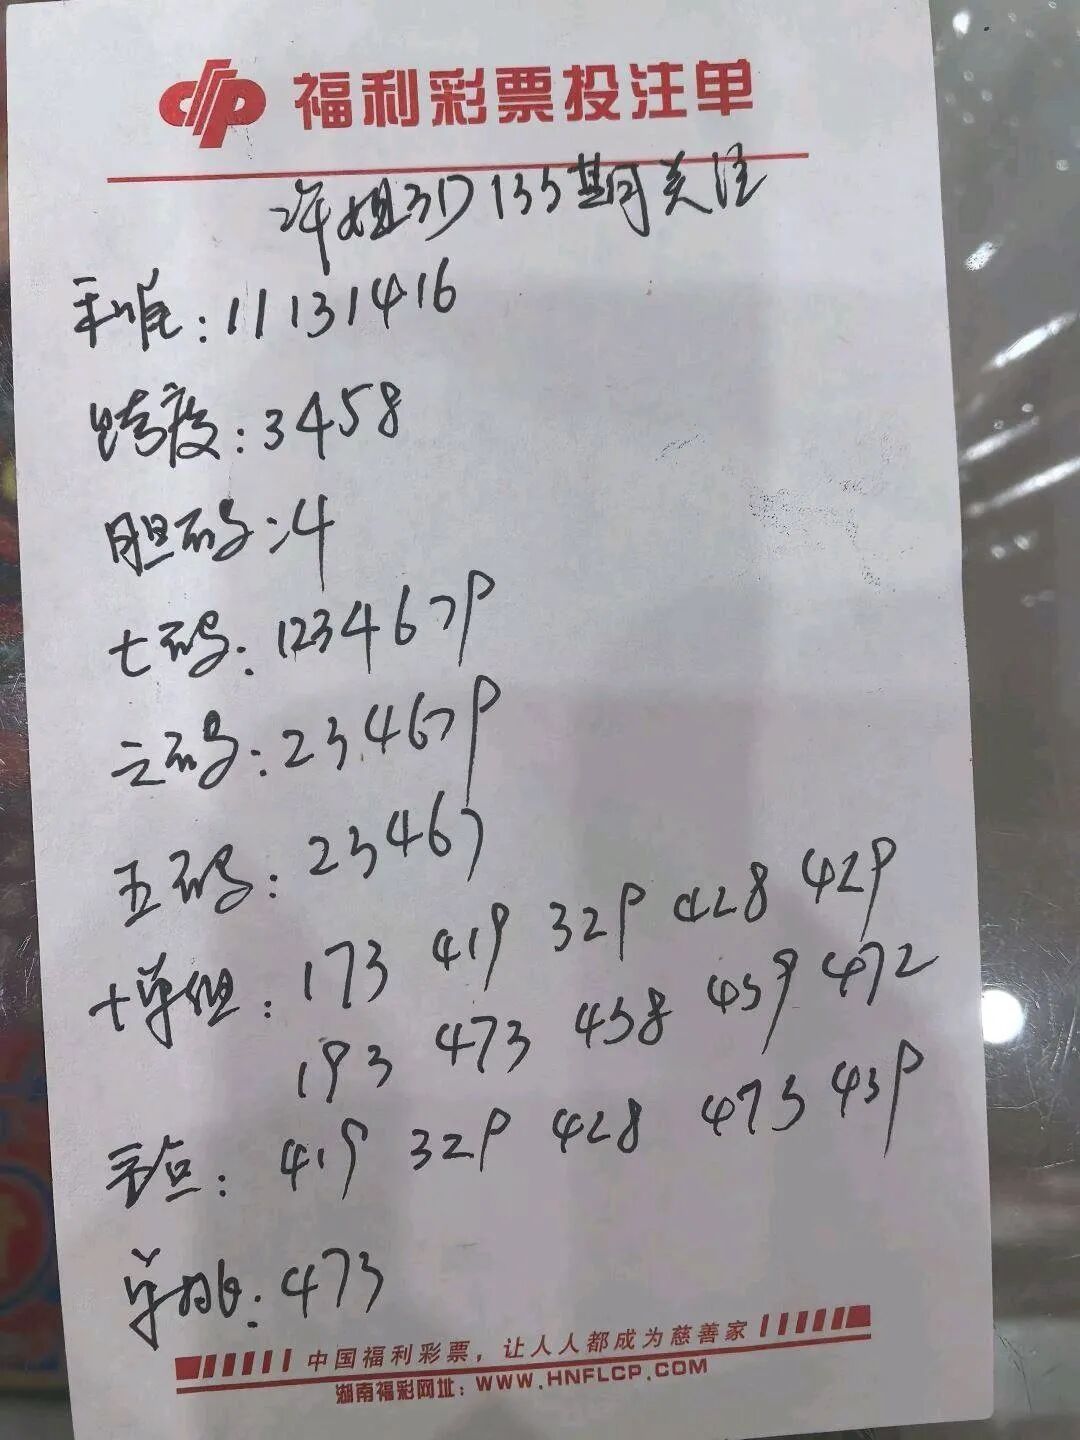 福利彩票投注单
姐3D 135期关注
和值: 11 13 14 16
跨度: 3458
胆码: 4
七码: 1234679
六码: 234679
五码: 23467
十单组: 173 419 329 428 429
193 473 458 459 472
重点: 419 329 428 473 439
单挑: 473
中国福利彩票，让人人都成为慈善家
湖南福彩网址：WWW.HNFLCP.COM